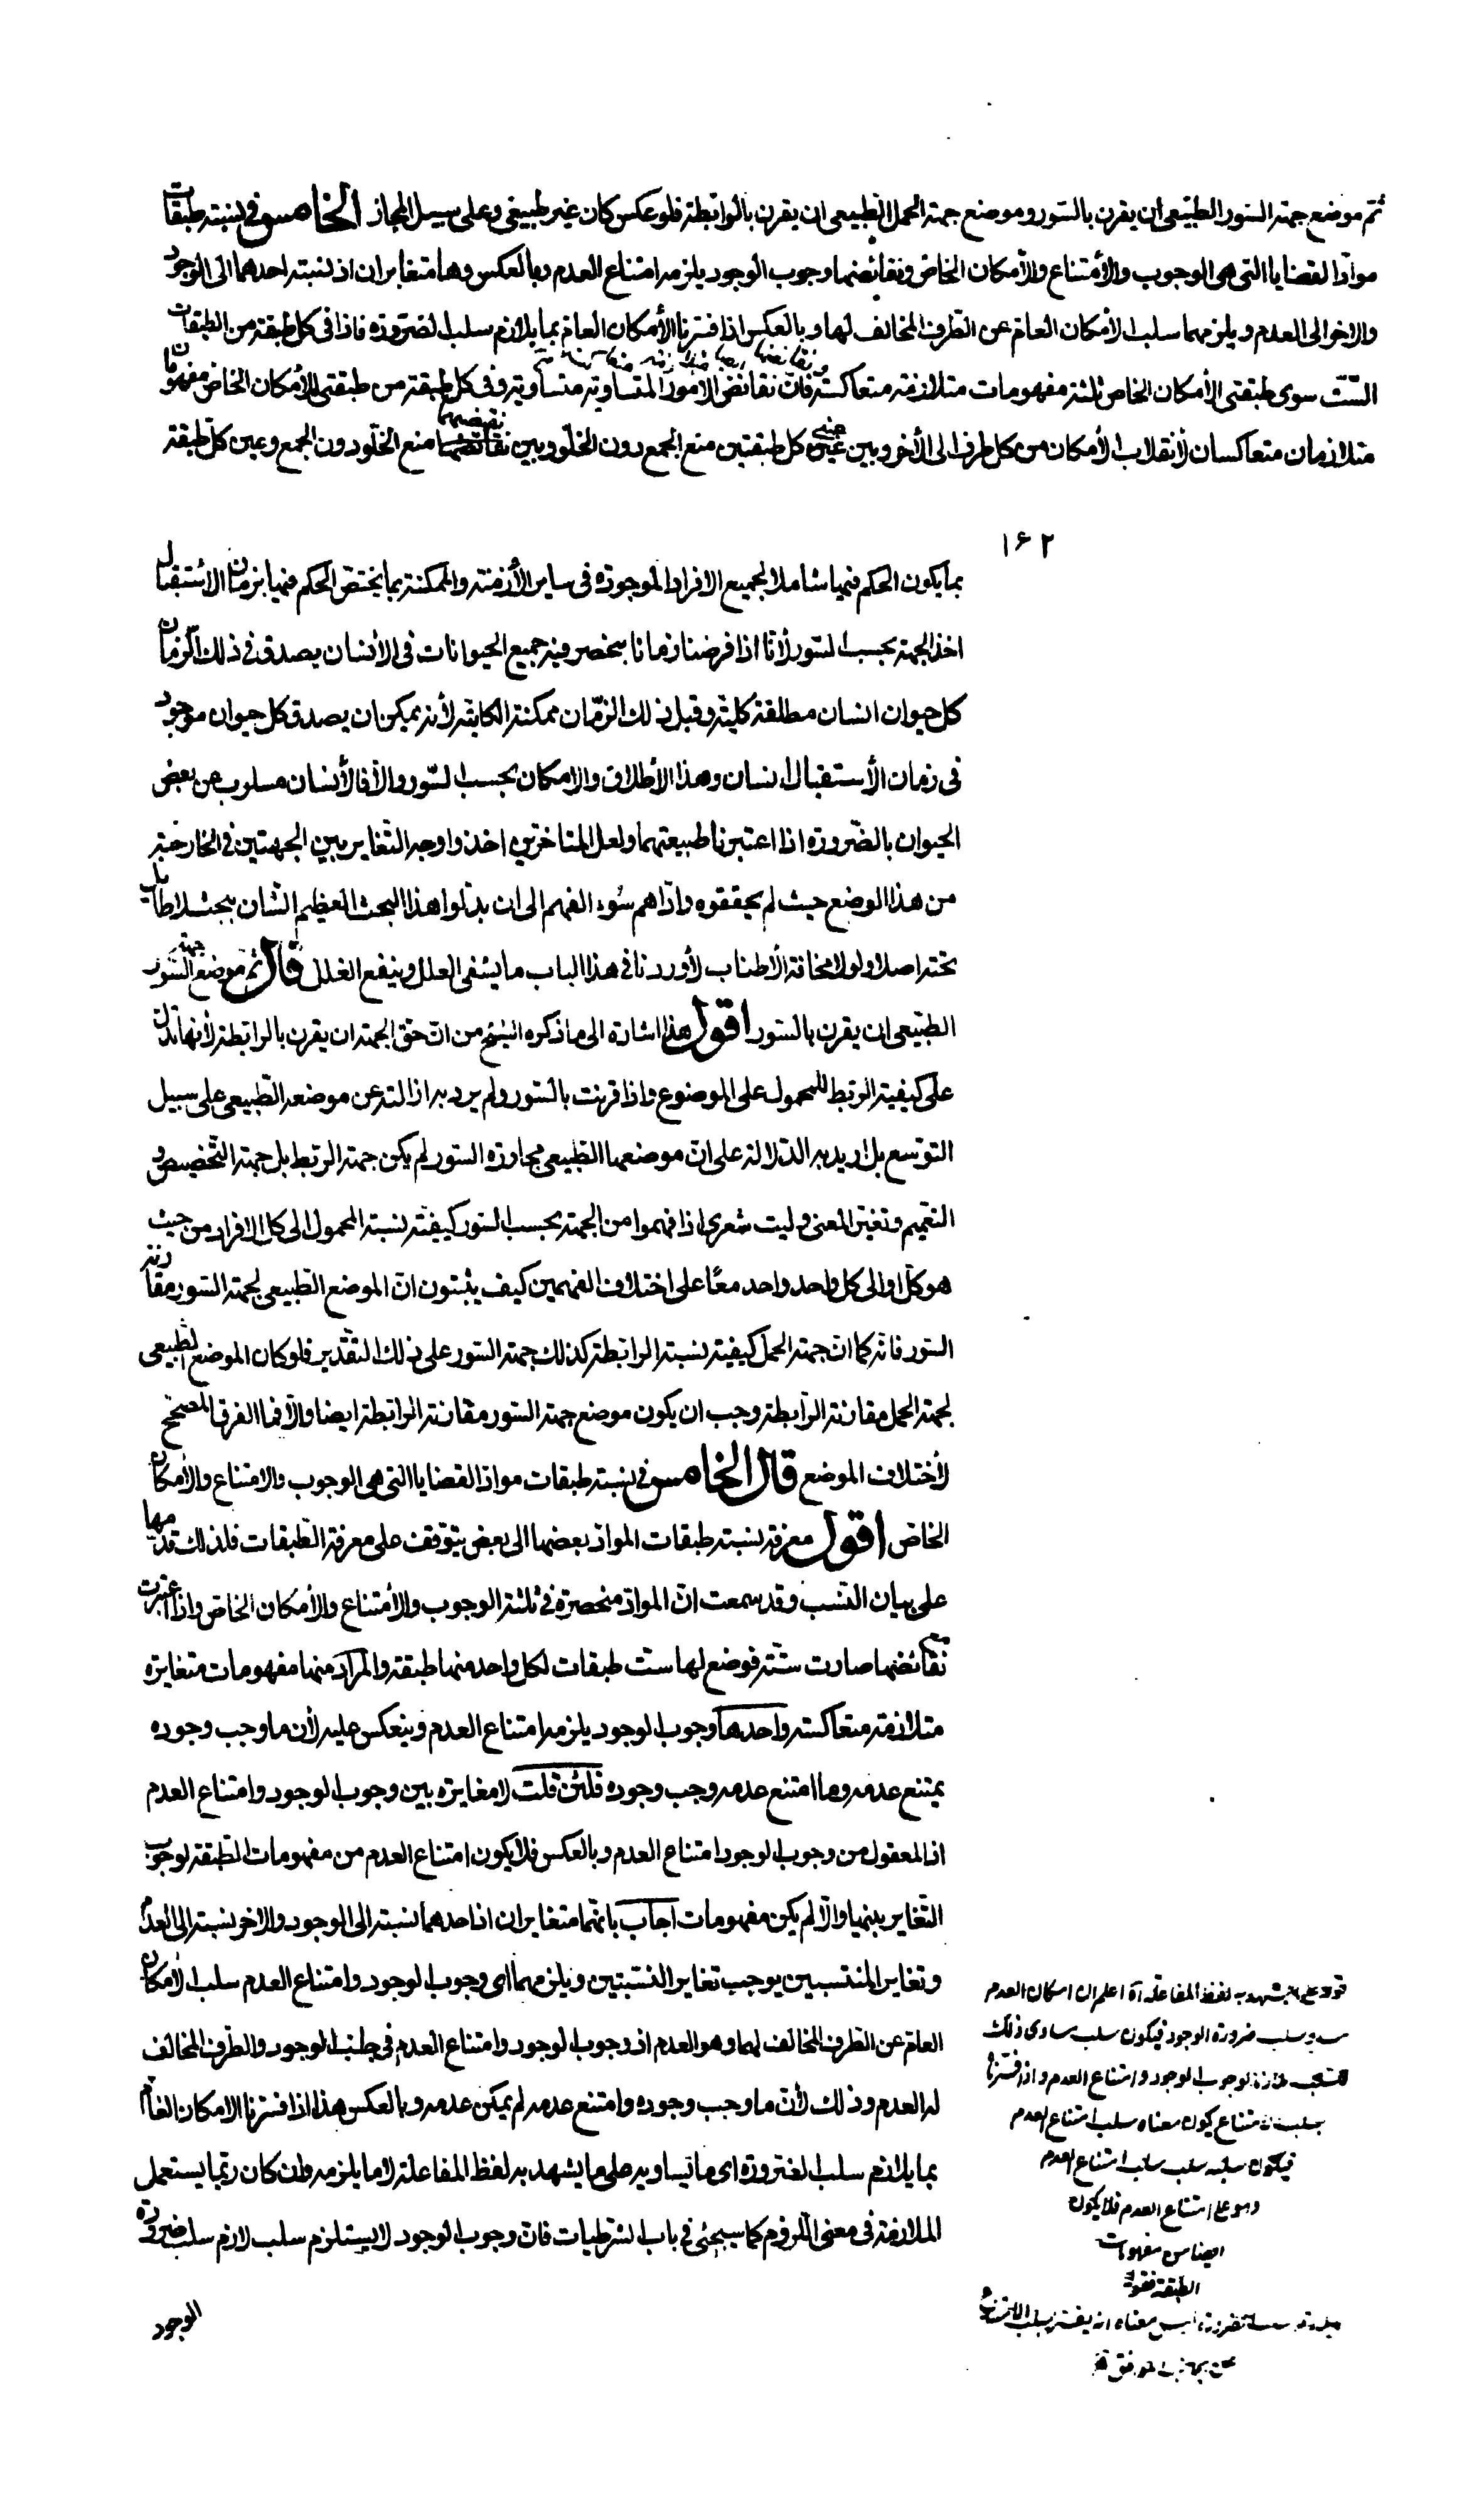 ثم موضع جهة السور الطبيعى ان يقرن بالسور وموضع جهة الحمل الطبيعى ان يقرن بالرابطة فلو عكس كان غير طبيعى وعلى سبيل المجاز الخامس فى نسبة طبقات
مواد القضايا التى هى الوجوب والأمتناع والأمكان الخاص ونقائضها وجوب الوجود يلزمه امتناع العدم وبالعكس وهما متغايران اذ نسبة احدهما الى الوجود
والاخر الى العدم ويلزمهما سلب الأمكان العام عن الطرف المخالف لهما وبالعكس اذا فسرنا الأمكان العام بما يلازم سلب الضرورة فاذا فى كل طبقة من الطبقات
الستّ سوى طبقتى الأمكان الخاص ثلثة مفهومات متلازمة متعاكسة فانّ نقائض الامور المتساوية متساوية وفى كل طبقة من طبقتى الأمكان الخاص مفهومان
متلازمان متعاكسان لأنقلاب الأمكان من كل طرف الى الأخر وبين عينى كل طبقتين منع الجمع دون الخلّو وبين نقيضيهما منع الخلّو دون الجمع وعين كل طبقة
١۶٢
بما يكون الحكم فيها شاملا لجميع الافراد الموجودة فى ساير الأزمنة والممكنة بما يختص الحكم فيها بزمان الاستقبال
اخذ الجهة بحسب السّور لأنا اذا فرضنا زمانا ينحصر فيه جميع الحيوانات فى الأنسان يصدق فى ذلك الزمان
كل حيوان انسان مطلقة كلية وقبل ذلك الزّمان ممكنة الكلية لأنه يمكن ان يصدق كل حيوان موجود
فى زمان الأستقبال انسان وهذا الأطلاق والامكان بحسب السّور والا فالأنسان مسلوب عن بعض
الحيوان بالضّرورة اذا اعتبرنا طبيعتهما ولعل المتاخرين اخذوا وجه التغاير بين الجهتين فى الخارجية
من هذا الوضع حيث لم يحققوه وادّاهم سُوء الفهم الى ان بدّلوا هذا البحث العظيم الشان ببحث لا طايل
تحته اصلا ولولا مخافة الأطناب لأوردنا فى هذا الباب ما يشفى العلل وينفع الغلل قال ثم موضع جهة السّور
الطبّيعى ان يقرن بالسّور اقول هذا اشارة الى ما ذكره الشيخ من ان حق الجهة ان يقرن بالرابطة لأنها تدل
على كيفية الربط للمحمول على الموضوع واذا قرنت بالسّور ولم يرد به ازالته عن موضعه الطّبيعى على سبيل
التوّسع بل اريد به الدّلالة على انّ موضعها الطبيعى مجاورة السّور لم يكن جهة الربط بل جهة التّخصيص و
التعميم وتغيّر المعنى وليت شعرى اذا فهموا من الجهة بحسب السّور كيفيّة نسبة المحمول الى كل الافراد من حيث
هو كل او الى كل واحد واحد معًا على اختلاف الفهمين كيف يثبتون انّ الموضع الطّبيعى لجهة السّور مقارنة
السّور فانه كما انّ جهة الحمل كيفية نسبة الرابطة كذلك جهة السّور على ذلك التقدير فلو كان الموضع الطّبيعى
لجهة الحمل مقارنة الرّابطة وجب ان يكون موضع جهة السّور مقارنة الرابطة ايضا والاّ فما الفرق المصحح
لأختلاف الموضع قال الخامس فى نسبة طبقات مواد القضايا التى هى الوجوب والامتناع والأمكان
الخاص اقول معرفة نسبة طبقات المواد بعضها الى بعض يتوقف على معرفة الطّبقات فلذلك قدّمها
على بيان النسب وقد سمعت انّ المواد منحصرة فى ثلثة الوجوب والأمتناع والأمكان الخاص واذا اعتبرت
نقائضها صارت ستّة فوضع لها ستّ طبقات لكل واحد منها طبقة والمراد منها مفهومات متغايرة
متلازمة متعاكسة واحدها وجوب الوجود يلزمه امتناع العدم وينعكس عليه لأن ما وجب وجوده
يمتنع عدمه وما امتنع عدمه وجب وجوده فلئن قلت لا مغايرة بين وجوب الوجود وامتناع العدم
اذ المعقول من وجوب الوجود امتناع العدم وبالعكس فلا يكون امتناع العدم من مفهومات الطّبقة لوجوب
التّغاير بينها والاّ لم يكن مفهومات اجاب بانّهما متغايران اذ احدهما نسبة الى الوجود والاخر نسبة الى العدم
وتغاير المنتسبين يوجب تغاير النّسبتين ويلزمهما اى وجوب الوجود وامتناع العدم سلب الأمكان
العام عن الطّرف المخالف لهما وهو العدم اذ وجوب الوجود وامتناع العدم فى جانب الوجود والطّرف المخالف
له العدم وذلك لأنّ ما وجب وجوده وامتنع عدمه لم يمكن عدمه وبالعكس هذا اذا فسّرنا الامكان العام
بما يلازم سلب الضرورة اى ما يساويه على ما يشهد به لفظ المفاعلة لا ما يلزمه وان كان ربّما يستعمل
الملازمة فى معنى اللزوم كما سيجئ فى باب الشرطيات فانّ وجوب الوجود لا يستلزم سلب لازم سلب ضرورة
الوجود
قوله على ما يشهد به لفظ المفاعلة اه اعلم ان امكان العدم
سلب ضرورة الوجود فيكون سلب مساوى ذلك
السلب ملازما لوجوب الوجود وامتناع العدم واذا فسّرنا
بسلب الامتناع يكون معناه سلب امتناع العدم
فيكون سلبه سلب سلب امتناع العدم
وهو عين امتناع العدم فلا يكون
ايضا من مفهومات
الطبقة فقوله